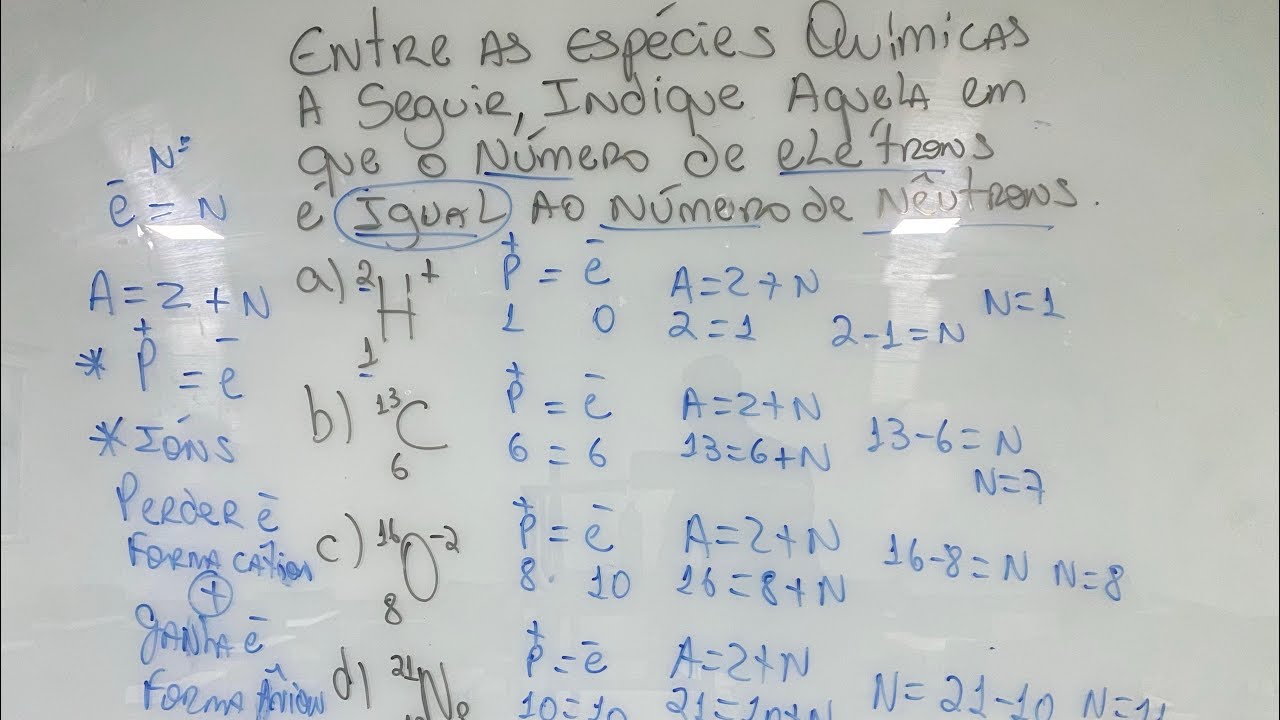 Entre as espécies Químicas
A Seguir, Indique Aquela em
que o Número de elétrons
é Igual ao Número de Nêutrons.
Nº
ē = N
A = Z + N
* P⁺ = ē
* Ións
Perder ē
Forma Cátion
+
Ganha ē
Forma Ânion
a) ²₁H⁺ P⁺ = ē A = Z + N
1 0 2 = 1 2 - 1 = N N = 1
b) ¹³₆C P⁺ = ē A = Z + N
6 = 6 13 = 6 + N 13 - 6 = N
N = 7
c) ¹⁶₈O⁻² P⁺ = ē A = Z + N
8. 10 16 = 8 + N 16 - 8 = N N = 8
d) ²¹Ne P⁺ = ē A = Z + N
10 = 10 21 = 10 + N N = 21 - 10 N = 11